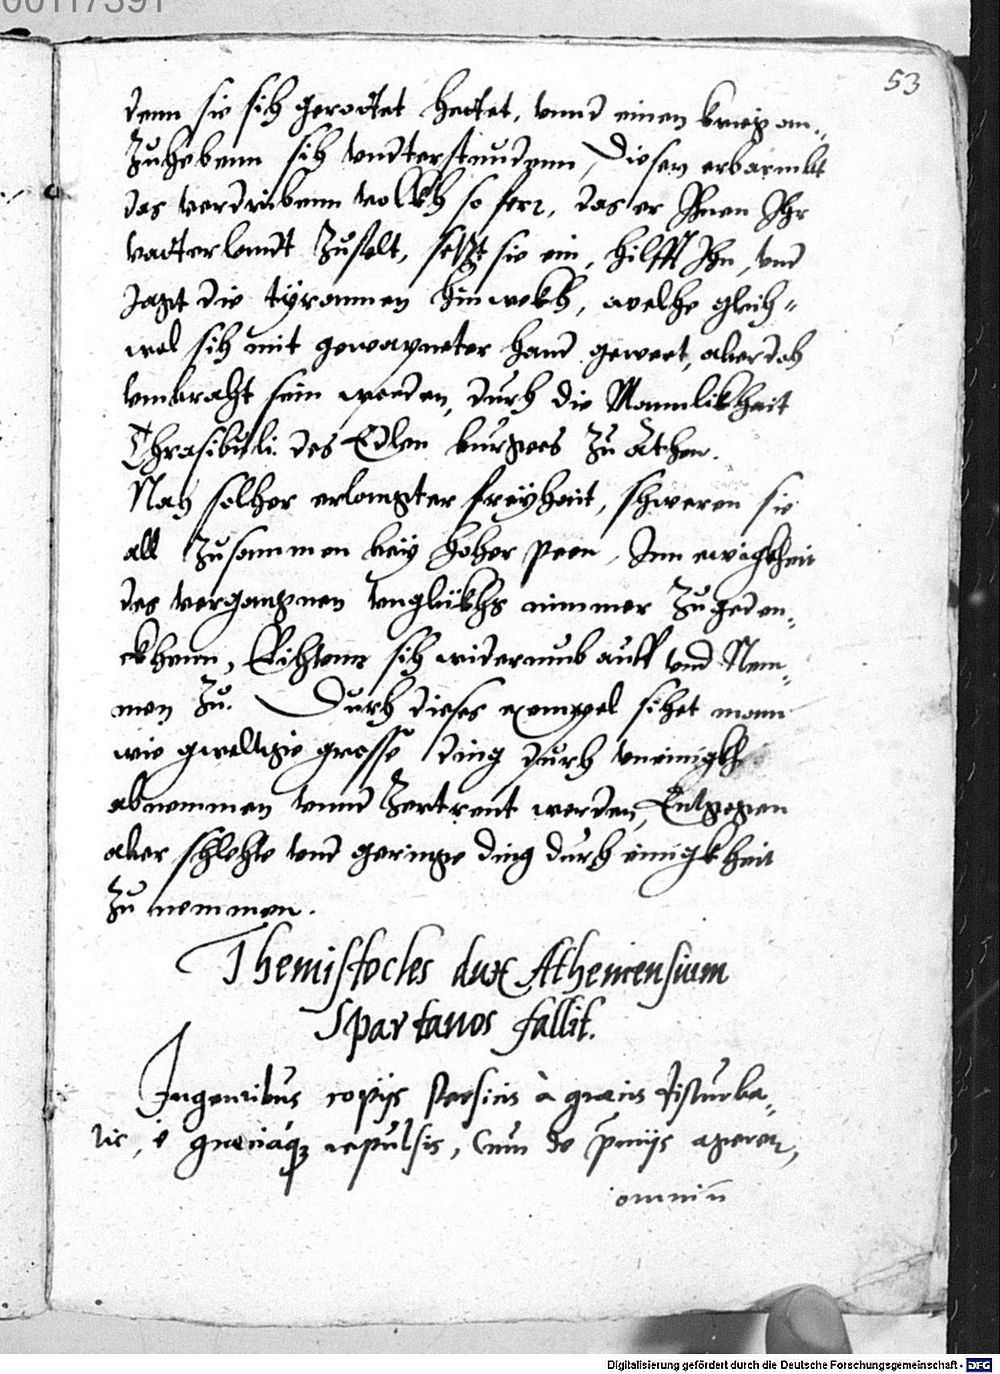 00117391
53
denn sie sich gerottet hettet, vnnd einen krieg an,,
Zuhebenn sich vndterstuendenn, Dieser erbarmbt
das verdribenn volckh so ser, das er Ihnen Ihr
vatterlandt Zustelt, setzt sie ein, hilfft Ihn, vnd
Jagt die tÿrannen hinwekh, welche gleich=
wol sich mit gewapneter hand geweert, aber doch
vmbracht sein worden, durch die Mannlikheit
Thrasibuli des Edlen burgers Zu Athen.
Nach solcher erlangter freÿheit, schweren sie
all Zusammen beÿ hoher peen, Inn ewigkheit
des vergangnen vnglükhs nimmer Zu geden,,
ckhenn, Richtenn sich widerumb auff vnd Nem,,
men Zu. Durch dieses exempel sihet mann
wie gweltige grosse ding durch vneinigkh
abnemmen vnnd Zertrent werden, Entgegen
aber schlechte vnd geringe ding durch einigkheit
Zu nemmen.
Themistocles dux Atheniensium
Spartanos fallit.
Ingentibus copijs Persicis à graecis disturba,,
tis, è graeciaq; repulsis, Cum de p̄mijs agerer,
omniū
Digitalisierung gefördert durch die Deutsche Forschungsgemeinschaft - DFG